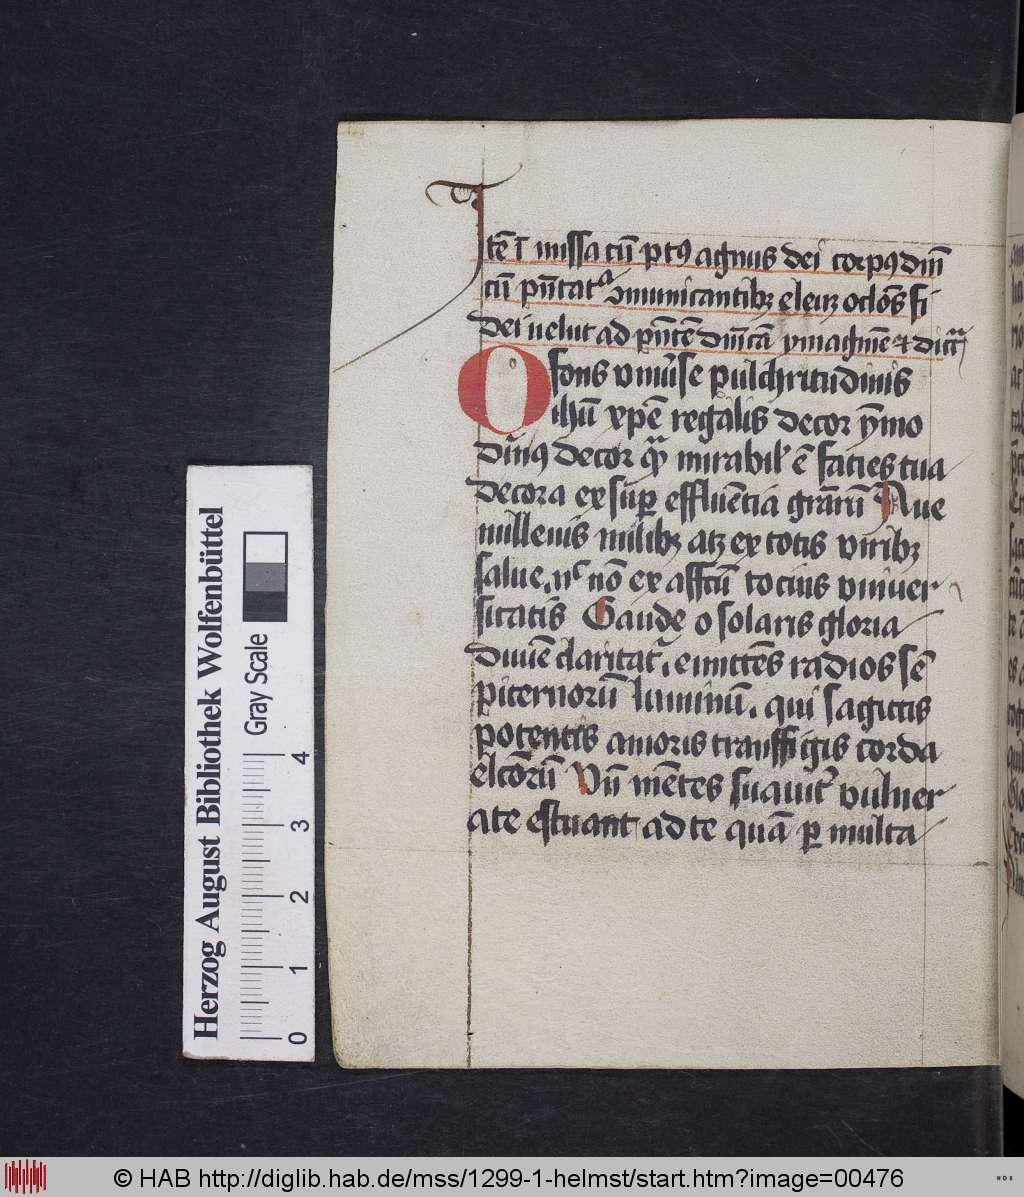 Itē ī missa cū ptꝰ agnus dei corpꝰ dnī
cū pn̄tatᵃ ꝯmunicantibꝫ eleuꝫ oclōs fi
dei uelut ad pn̄tē dn̄icā ymaginē ⁊ dicᵃ
O fons vniūse pulchritudinis
ihū xp̄e regalis decor ymo
diuīꝰ decor qᵃ mirabil' ē facies tua
decora ex suꝑ effluētia gr̄arū Aue
millenis milibꝫ atꝫ ex totis viribꝫ
salue. nᶜ nō ex affcū tocius vniuer
sitatis Gaude o solaris gloria
diuīe claritat. emittēs radios sē
piternorū luminū. qui sagittis
potentis amoris transfigis corda
elcōrū Vn̄ mētes suauit' vulner
ate estuant ad te quā ꝑ multa
Herzog August Bibliothek Wolfenbüttel
Gray Scale
0 1 2 3 4
© HAB http://diglib.hab.de/mss/1299-1-helmst/start.htm?image=00476